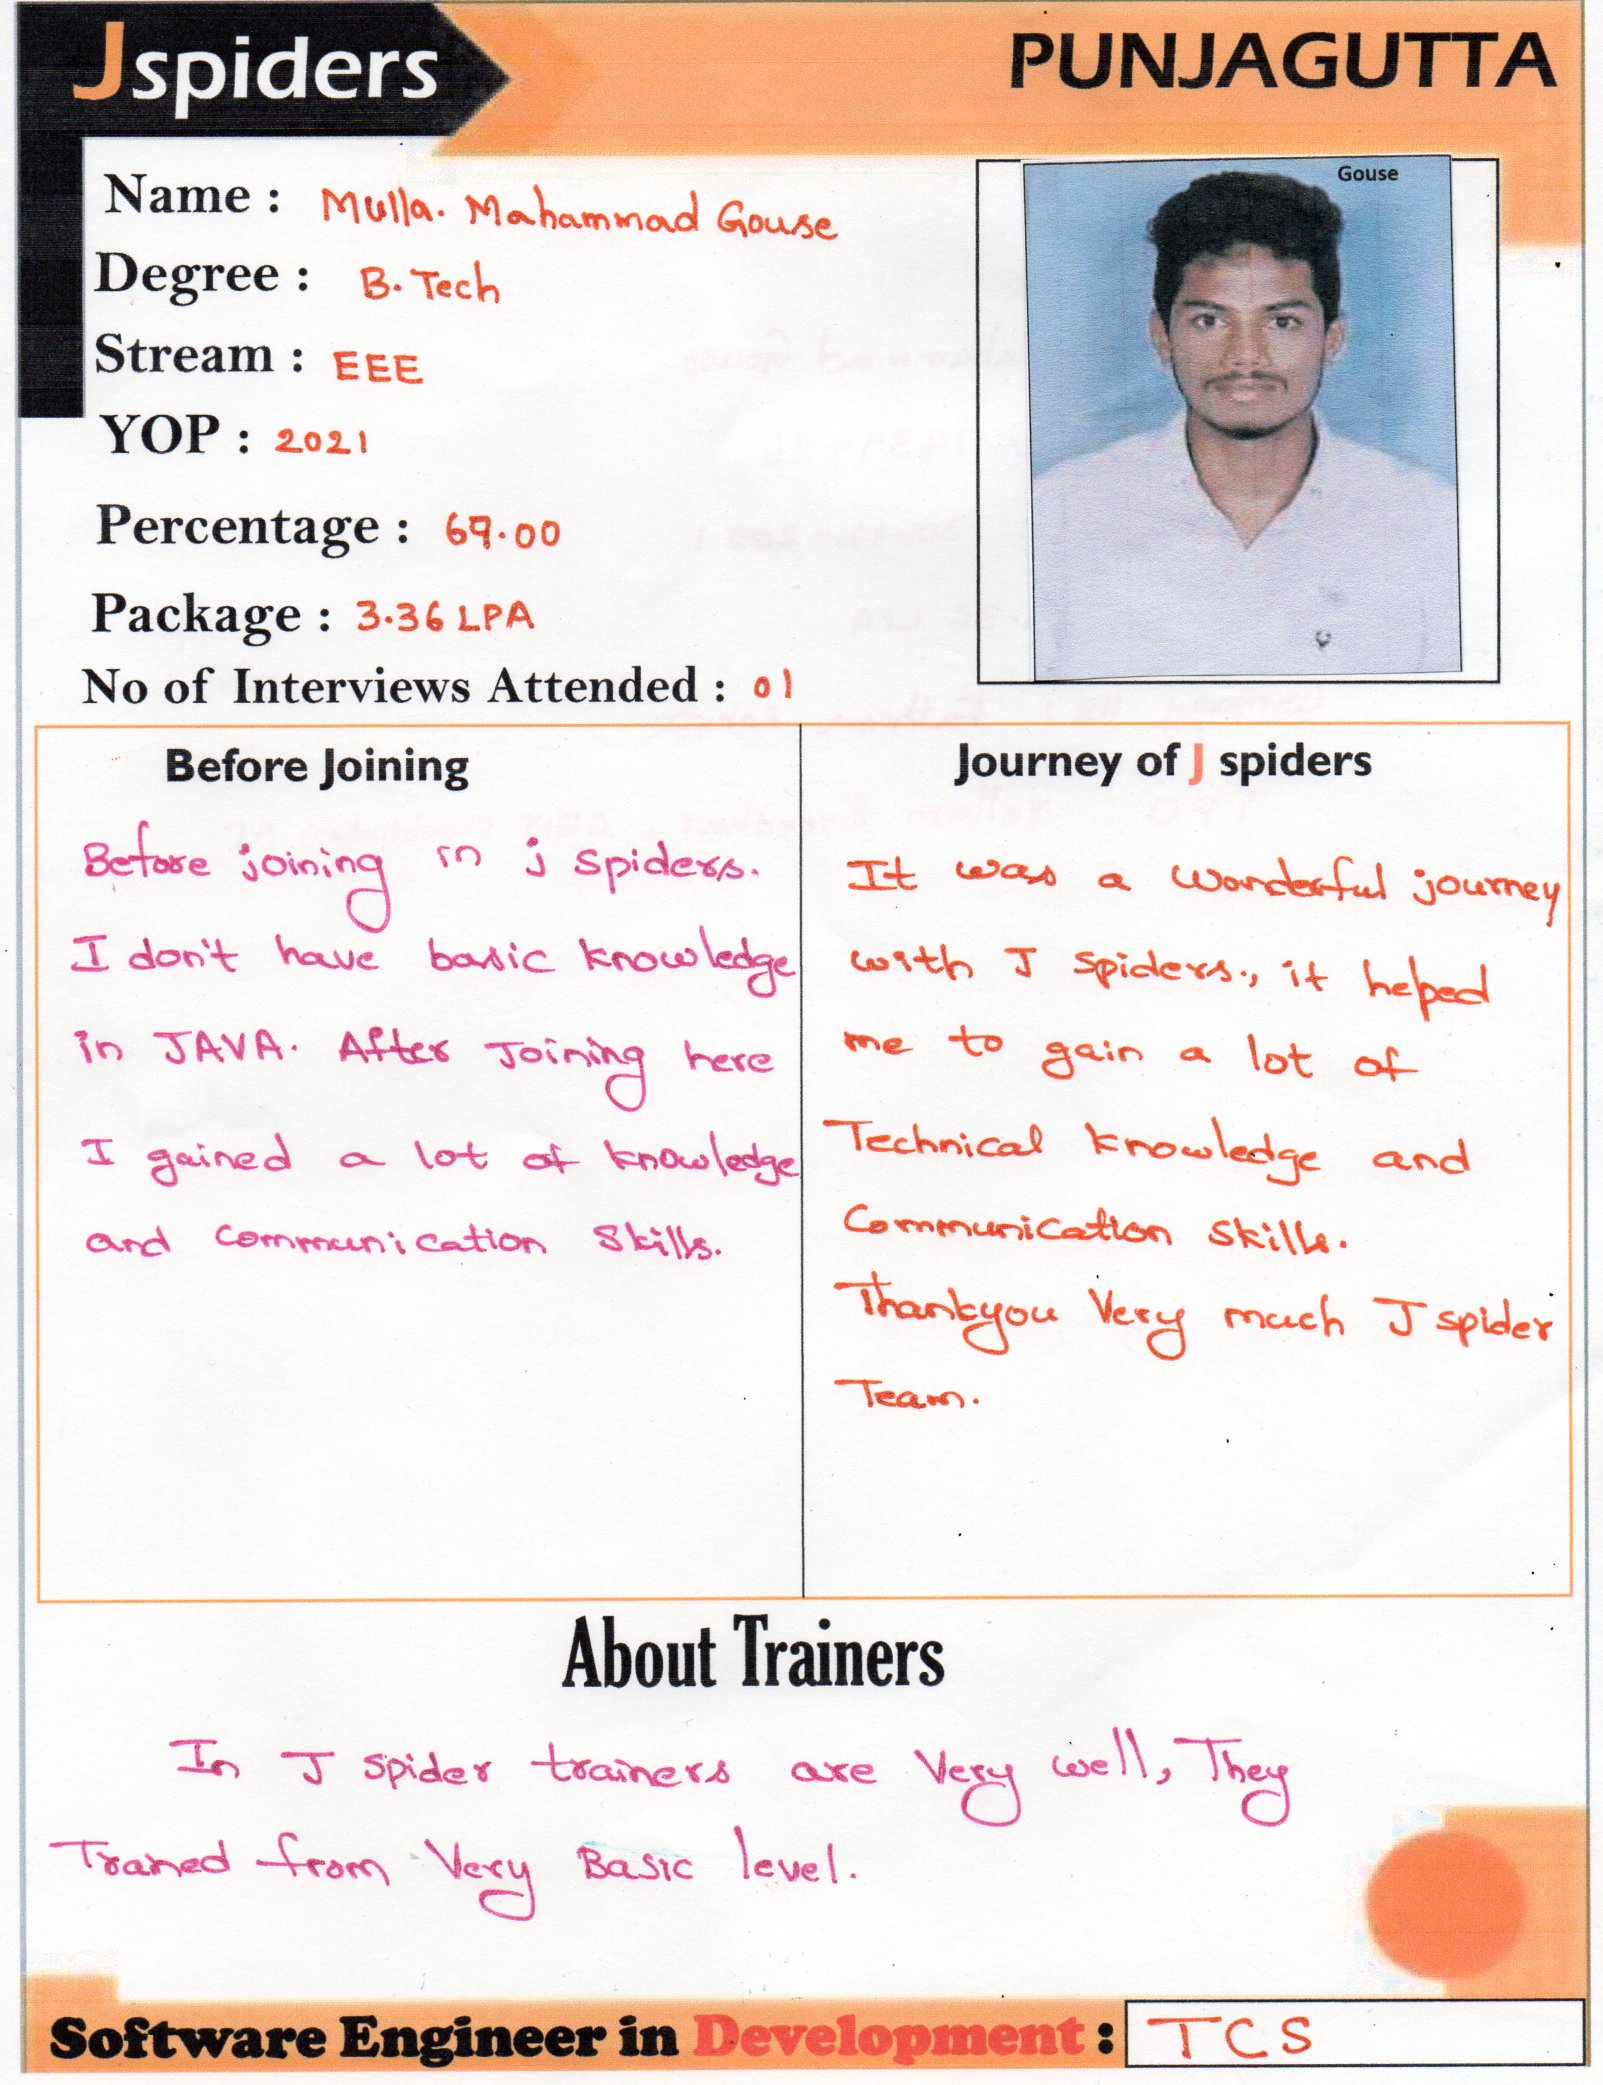 Jspiders
PUNJAGUTTA
Gouse
Name : Mulla. Mahammad Gouse
Degree : B.Tech
Stream : EEE
YOP : 2021
Percentage : 69.00
Package : 3.36 LPA
No of Interviews Attended : 01
Before Joining
Before joining in j spiders.
I don't have basic knowledge
in JAVA. After Joining here
I gained a lot of knowledge
and communication skills.
Journey of J spiders
It was a wonderful journey
with J spiders., it helped
me to gain a lot of
Technical knowledge and
Communication skills.
Thankyou Very much J spider
Team.
About Trainers
In J spider trainers are Very well, They
Trained from Very Basic level.
Software Engineer in Development : TCS